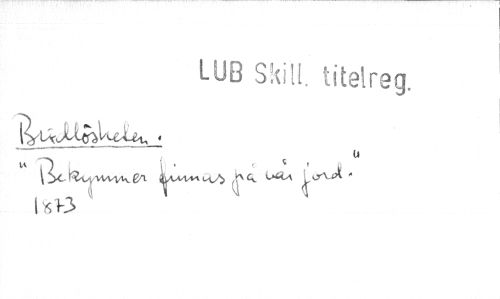 LUB Skill. titelreg.
Brödlösheten.
"Bekymmer finnas på vår jord."
1873